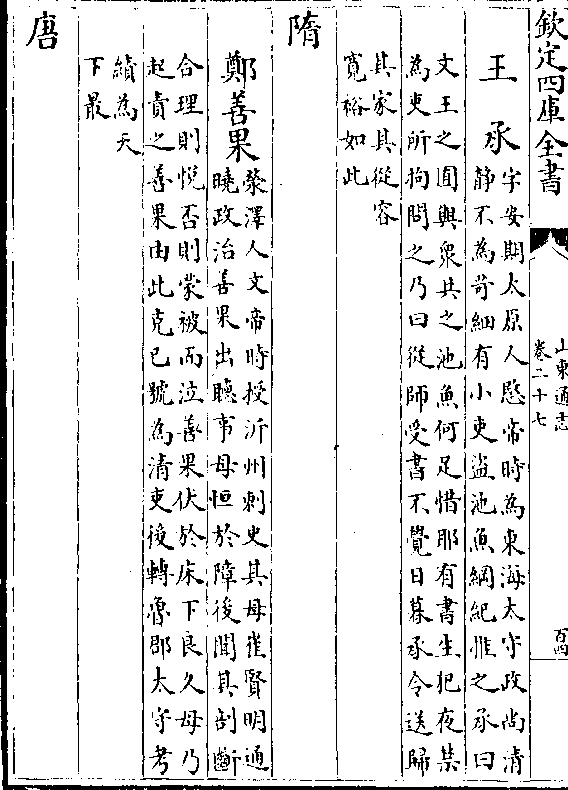 欽定四庫全書
山東通志
卷二十七
百四
王承
字安期太原人愍帝時為東海太守政尚清
静不為苛細有小吏盜池魚綱紀惟之承曰
文王之囿與衆共之池魚何足惜耶有書生犯夜禁
為吏所拘問之乃曰從師受書不覺日暮承令送歸
其家其從容
寛裕如此
隋
鄭善果
滎澤人文帝時授沂州刺史其母崔賢明通
曉政治善果出聽事母恒於障後聞其剖斷
合理則悦否則蒙被而泣善果伏於床下良久母乃
起責之善果由此克已號為清吏後轉魯郡太守考
績為天
下最
唐